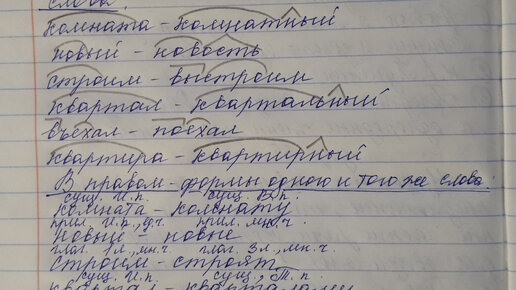 слова:
комната - комнатный
новый - новость
строим - выстроим
квартал - квартальный
въехал - поехал
квартира - квартирный
В правом - формы одного и того же слова:
сущ. И.п. сущ. В.п.
комната - комнату
прил. И.п., ед.ч. прил. мн.ч.
новый - новые
глаг. 1л., мн.ч. глаг. 3л., мн.ч.
строим - строят
сущ. И.п. сущ., Т.п.
квартал - кварталами